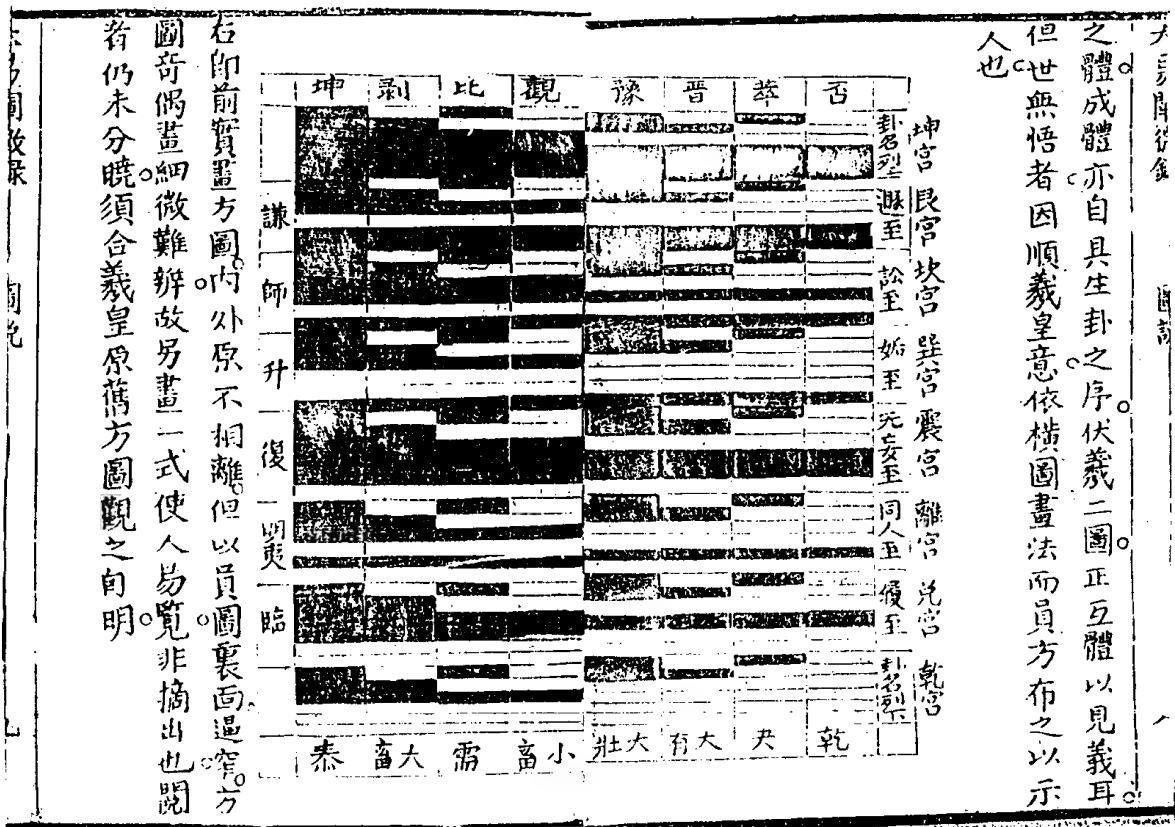 之體成體亦自具生卦之序伏羲二圖正互體以見義耳
但世無悟者因順羲皇意依橫圖畫法而員方布之以示
人也
坤宮
艮宮
坎宮
巽宮
震宮
離宮
兌宮
乾宮
卦名列上
遯至
訟至
姤至
无妄至
同人至
履至
卦名列下
否
萃
晉
豫
觀
比
剥
坤
謙
師
升
復
明夷
臨
乾
夬
大有
大壯
小畜
需
大畜
泰
右即前實畫方圖内外原不相離但以員圖裏面逼窄方
圖奇偶畫細微難辨故另畫一式使人易覽非摘出也閱
者仍未分曉須合羲皇原舊方圖觀之自明